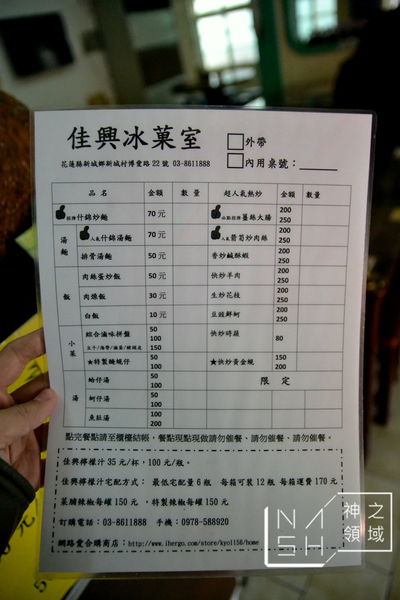 佳興冰菓室
外帶
內用桌號：
花蓮縣新城鄉新城村博愛路22號 03-8611888
品名 金額 數量 超人氣熱炒 金額 數量
招牌什錦炒麵 70元 薑絲大腸 200 250
湯麵 人氣什錦湯麵 70元 人氣箭筍炒肉絲 200 250
排骨湯麵 50元 香炒鹹酥蝦 200 250
飯 肉絲蛋炒飯 50元 快炒羊肉 200 250
肉燥飯 30元 生炒花枝 200 250
白飯 10元 豆豉鮮蚵 200 250
小菜 綜合滷味拼盤 50 100 150 快炒時蔬 80
★特製醃蜆仔 50 100 ★快炒黃金蜆 150 200
湯 蛤仔湯 50 100 限定
蚵仔湯 50 100
魚肚湯 100
點完餐點請至櫃檯結帳，餐點現點現做請勿催餐、請勿催餐、請勿催餐。
佳興檸檬汁35元/杯，100元/瓶。
佳興檸檬汁宅配方式： 最低宅配量6瓶 每箱可裝12瓶 每箱運費170元
菜脯辣椒每罐150元 ，特製辣椒每罐150元
訂購電話：03-8611888 手機：0978-588920
網路愛合購商店：http://www.ihergo.com/store/kyo1156/home
NASH
神之領域